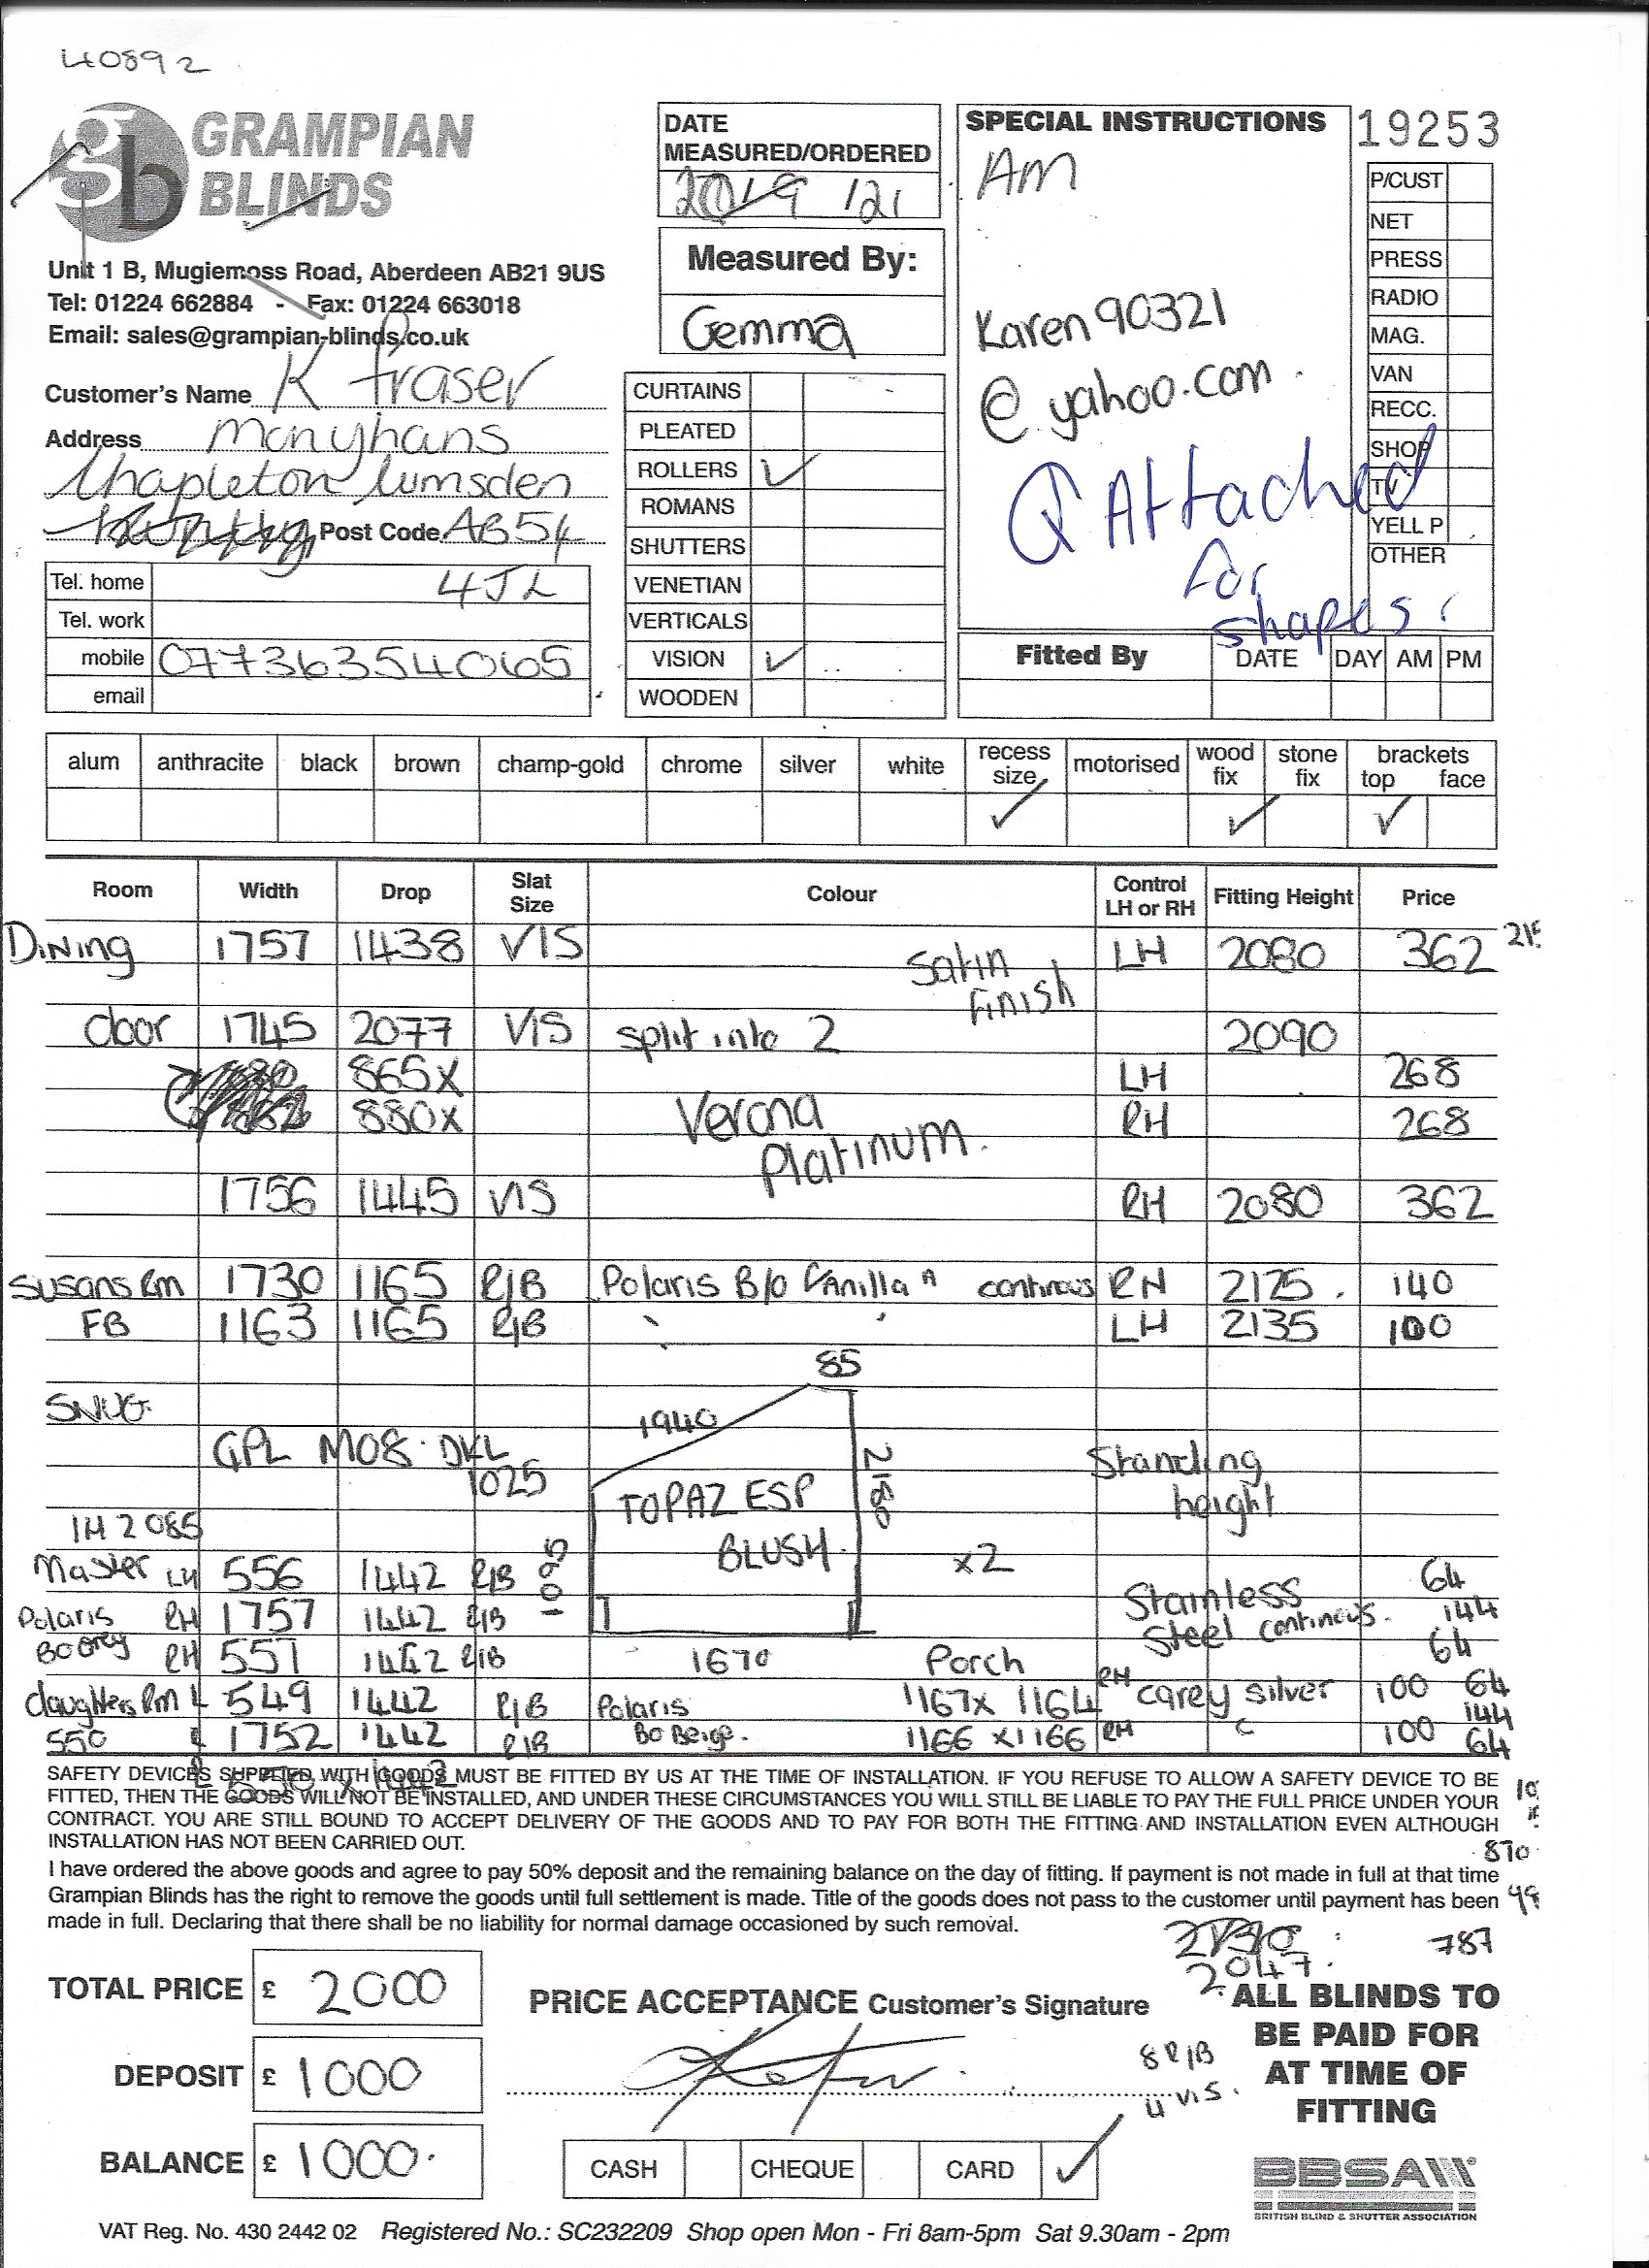 40892
GRAMPIAN
BLINDS
Unit 1 B, Mugiemoss Road, Aberdeen AB21 9US
Tel: 01224 662884 - Fax: 01224 663018
Email: sales@grampian-blinds.co.uk
Customer's Name K Fraser
Address Monyhans
Chapleton Lumsden
Post Code AB54
4JL
Tel. home
Tel. work
mobile 07736354065
email
DATE
MEASURED/ORDERED
121
Measured By:
Gemma
CURTAINS
PLEATED
ROLLERS ✓
ROMANS
SHUTTERS
VENETIAN
VERTICALS
VISION ✓
WOODEN
SPECIAL INSTRUCTIONS
AM
Karen90321
@yahoo.com.
Attached
for
shapes.
19253
P/CUST
NET
PRESS
RADIO
MAG.
VAN
RECC.
SHOP
TV
YELL P
OTHER
Fitted By DATE DAY AM PM
alum anthracite black brown champ-gold chrome silver white recess size motorised wood fix stone fix brackets top face
✓ ✓ ✓
Room Width Drop Slat Size Colour Control LH or RH Fitting Height Price
Dining 1757 1438 VIS LH 2080 362
Satin
Finish
door 1745 2077 VIS split into 2 2090
865x LH 268
880x RH 268
Verona
Platinum.
1756 1445 VIS RH 2080 362
Susans Rm 1730 1165 R/B Polaris B/o Vanilla continous RH 2125 140
FB 1163 1165 R/B LH 2135 100
85
SNUG 1940
GPL M08 DKL
1025
TOPAZ ESP 2180 Standing
height
BLUSH. x2
1H 2085
1095
Master LH 556 1442 R/B 64
Stainless
Polaris RH 1757 1442 R/B 144
Steel continous.
BO Grey RH 551 1442 R/B 1670 Porch 64
daughters Rm L 549 1442 R/B Polaris 1167x 1164 RH carey silver 100 64
144
550 1752 1442 R/B BO Beige. 1166 x1166 RH 100 64
SAFETY DEVICES SUPPLIED WITH GOODS MUST BE FITTED BY US AT THE TIME OF INSTALLATION. IF YOU REFUSE TO ALLOW A SAFETY DEVICE TO BE
FITTED, THEN THE GOODS WILL NOT BE INSTALLED, AND UNDER THESE CIRCUMSTANCES YOU WILL STILL BE LIABLE TO PAY THE FULL PRICE UNDER YOUR
CONTRACT. YOU ARE STILL BOUND TO ACCEPT DELIVERY OF THE GOODS AND TO PAY FOR BOTH THE FITTING AND INSTALLATION EVEN ALTHOUGH
INSTALLATION HAS NOT BEEN CARRIED OUT.
870
I have ordered the above goods and agree to pay 50% deposit and the remaining balance on the day of fitting. If payment is not made in full at that time
Grampian Blinds has the right to remove the goods until full settlement is made. Title of the goods does not pass to the customer until payment has been
made in full. Declaring that there shall be no liability for normal damage occasioned by such removal.
787
2047.
TOTAL PRICE £ 2000
DEPOSIT £ 1000
BALANCE £ 1000.
PRICE ACCEPTANCE Customer's Signature
8 R/B
4 VIS.
CASH CHEQUE CARD ✓
ALL BLINDS TO
BE PAID FOR
AT TIME OF
FITTING
BBSA
BRITISH BLIND & SHUTTER ASSOCIATION
VAT Reg. No. 430 2442 02 Registered No.: SC232209 Shop open Mon - Fri 8am-5pm Sat 9.30am - 2pm